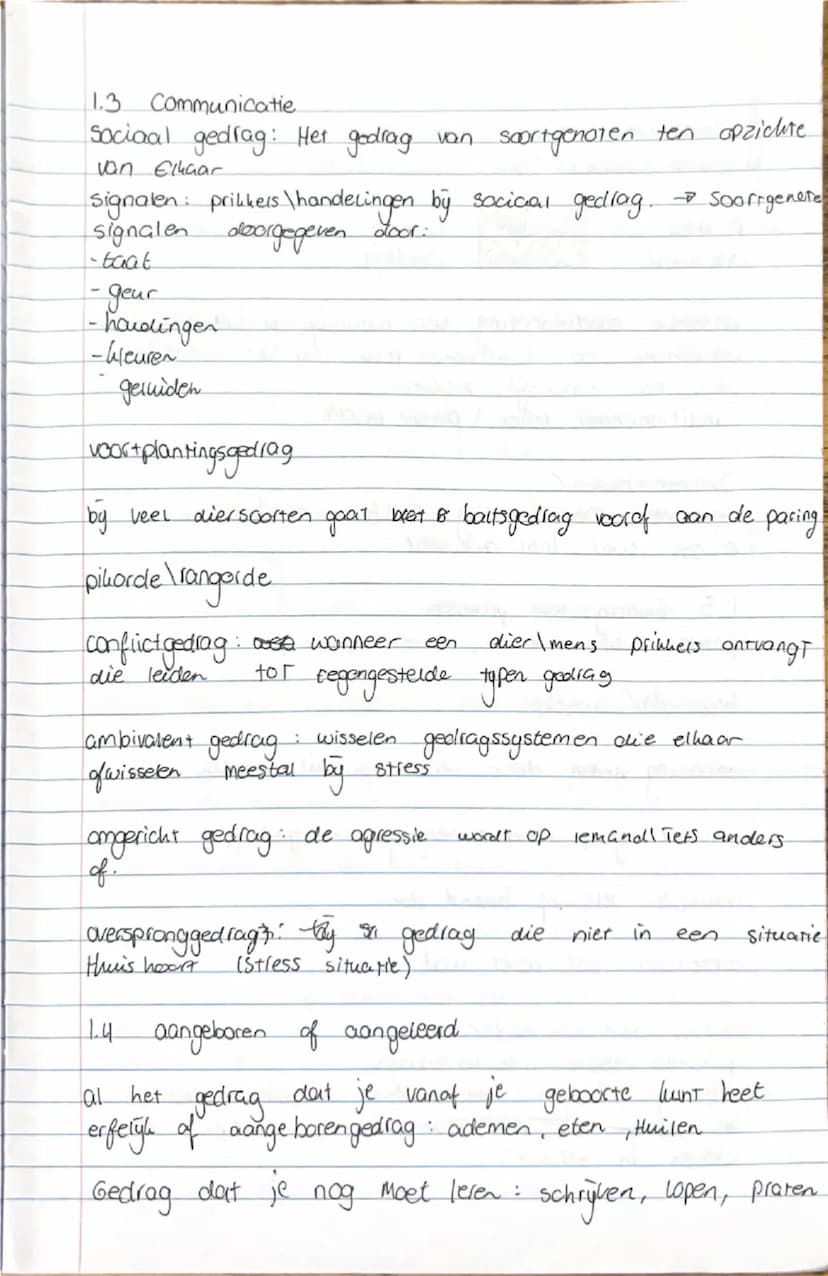 1.3 Communicatie
Sociaal gedrag: Het gedrag van soortgenoten ten opzichte
van Elkaar
signalen: prikkels\handelingen bij sociaal gedrag. → soortgenote
signalen doorgegeven door:
-taal
-geur
-houdingen
-kleuren
- geluiden
voortplantingsgedrag
bij veel diersoorten gaat baltsgedrag vooraf aan de paring
pikorde\rangorde
conflictgedrag: wanneer een dier\mens prikkels ontvangt
die leiden tot tegengestelde typen gedrag
ambivalent gedrag: wisselen gedragssystemen die elkaar
afwisselen meestal bij stress
omgericht gedrag: de agressie wordt op iemand\iets anders
af.
overspronggedrag: gedrag die niet in een situatie
thuis hoort (stress situatie)
1.4 aangeboren of aangeleerd
al het gedrag dat je vanaf je geboorte kunt heet
erfelijk of aangeborengedrag: ademen, eten, Huilen
Gedrag dat je nog Moet leren: schrijven, lopen, praten